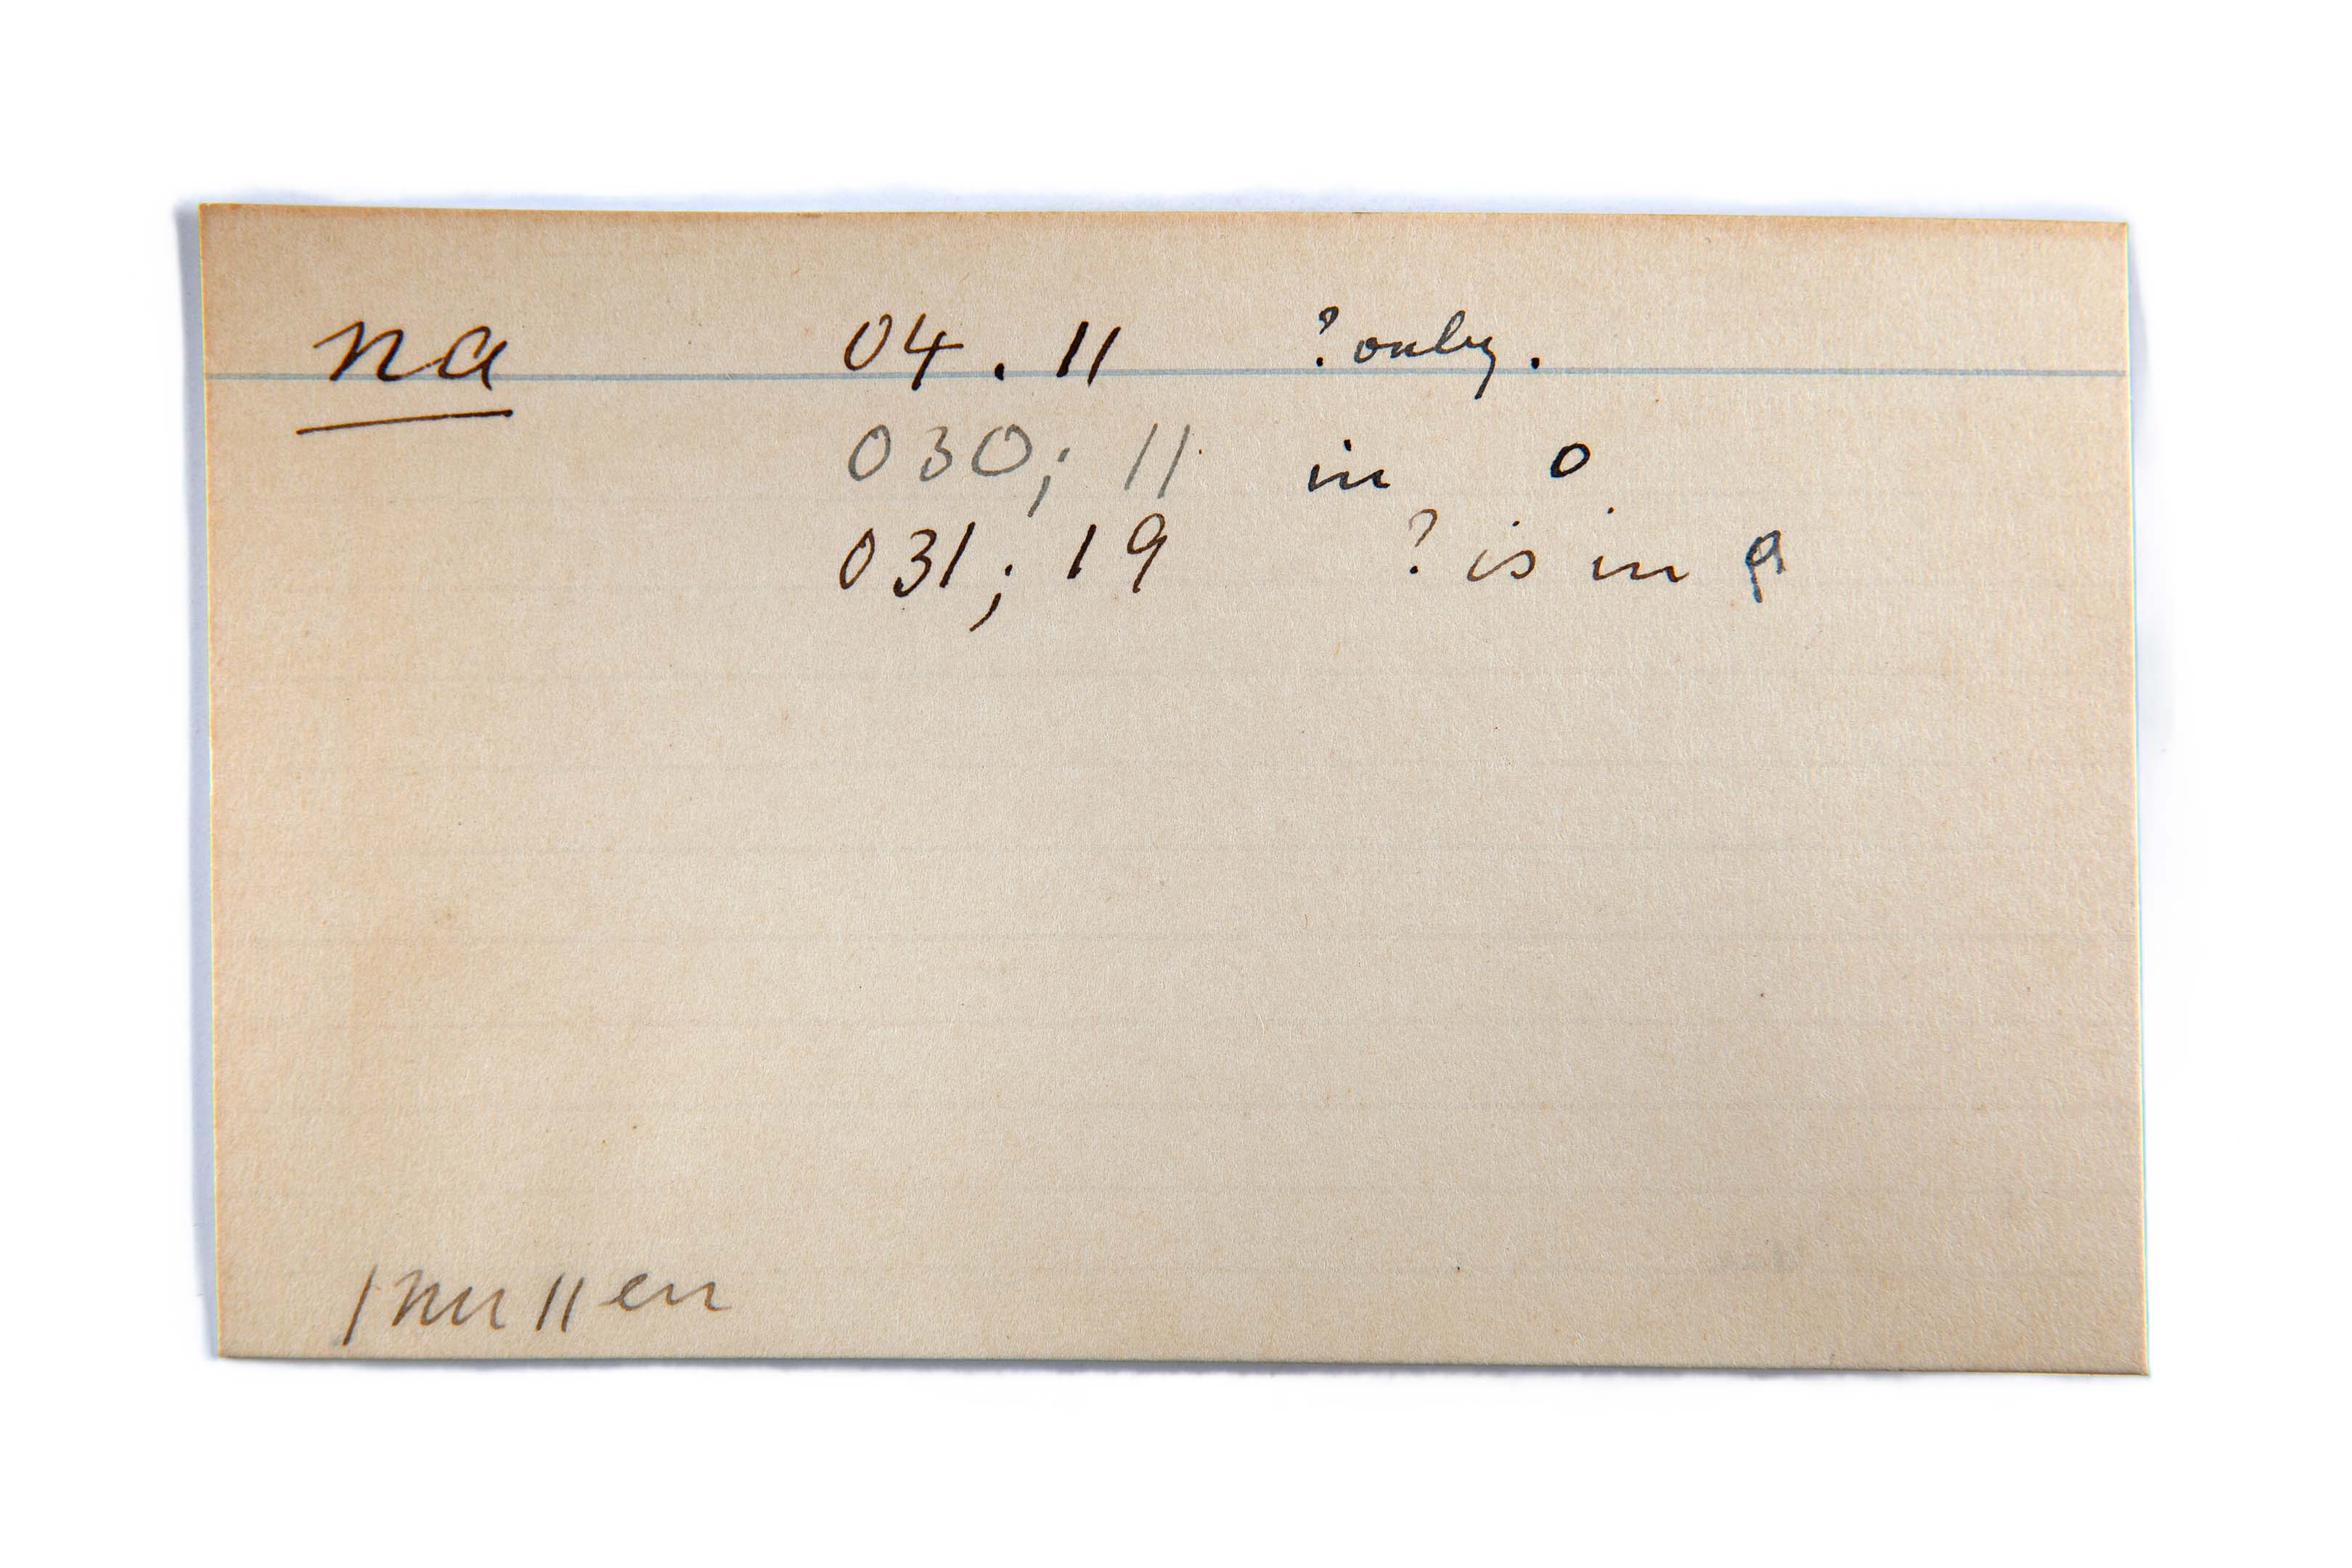 na 04. 11 ? only.
030; 11 in o
031; 19 ? is in